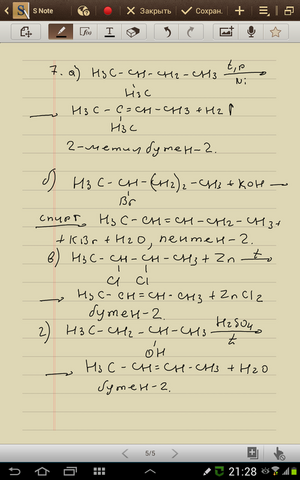 S Note
Закрыть
Сохран.
7. а) H₃C – CH – CH₂ – CH₃ t, p
H₃C Ni
→ H₃C – C = CH – CH₃ + H₂↑
H₃C
2-метилбутен-2.
б) H₃C – CH – (CH₂)₂ – CH₃ + KOH →
Br
спирт H₃C – CH = CH – CH₂ – CH₃ +
+ KBr + H₂O, пентен-2.
в) H₃C – CH – CH – CH₃ + Zn t →
Cl Cl
→ H₃C – CH = CH – CH₃ + ZnCl₂
бутен-2.
г) H₃C – CH₂ – CH – CH₃ H₂SO₄
OH t
→ H₃C – CH = CH – CH₃ + H₂O
бутен-2.
5/5
21:28